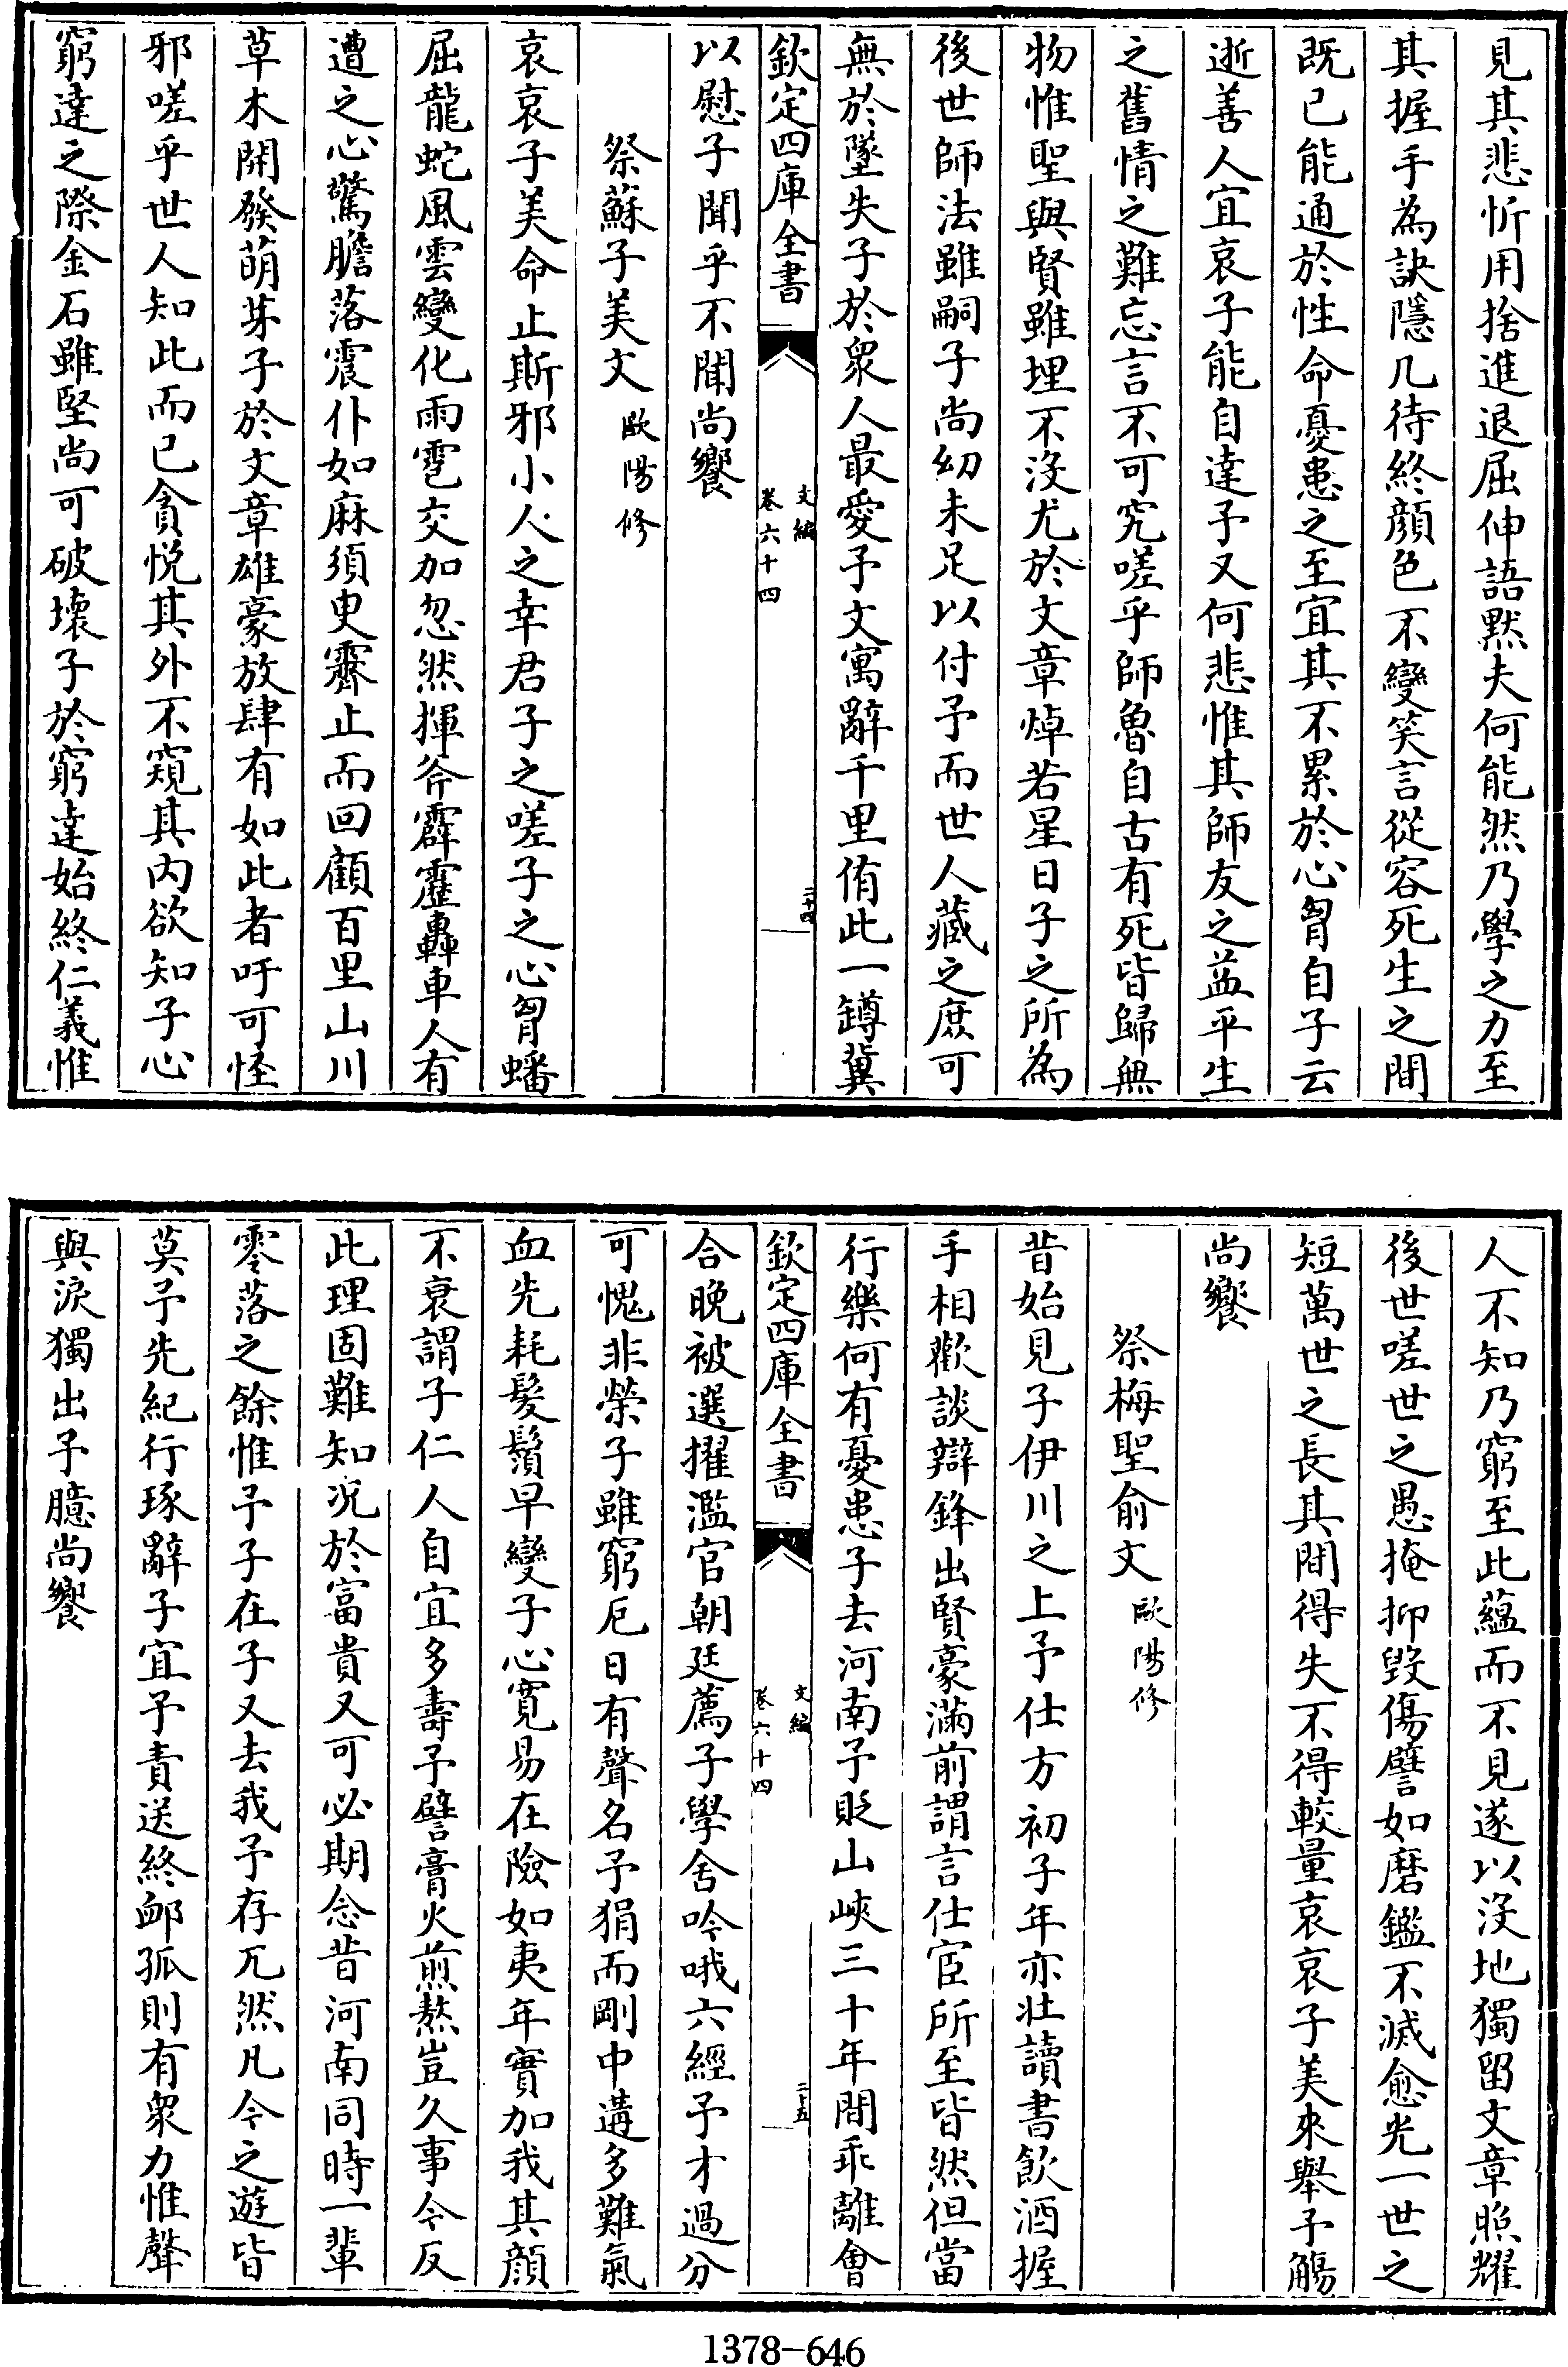 見其悲忻用捨進退屈伸語默夫何能然乃學之力至
其握手為訣隱几待終顔色不變笑言從容死生之間
既已能通於性命憂患之至宜其不累於心胷自子云
逝善人宜哀子能自達予又何悲惟其師友之益平生
之舊情之難忘言不可究嗟乎師魯自古有死皆歸無
物惟聖與賢雖埋不沒尤於文章焯若星日子之所為
後世師法雖嗣子尚幼未足以付予而世人藏之庶可
無於墜失子於衆人最愛予文寓辭千里侑此一罇冀
欽定四庫全書
文編
卷六十四
二十四
以慰子聞乎不聞尚饗
祭蘇子美文歐陽修
哀哀子美命止斯邪小人之幸君子之嗟子之心胷蟠
屈龍蛇風雲變化雨雹交加忽然揮斧霹靂轟車人有
遭之心驚膽落震仆如麻須臾霽止而回顧百里山川
草木開發萌芽子於文章雄豪放肆有如此者吁可怪
邪嗟乎世人知此而已貪悦其外不窺其内欲知子心
窮達之際金石雖堅尚可破壞子於窮達始終仁義惟
人不知乃窮至此蘊而不見遂以沒地獨留文章照耀
後世嗟世之愚掩抑毁傷譬如磨鑑不滅愈光一世之
短萬世之長其間得失不得較量哀哀子美來舉予觴
尚饗
祭梅聖俞文歐陽修
昔始見子伊川之上予仕方初子年亦壯讀書飲酒握
手相歡談辯鋒出賢豪滿前謂言仕宦所至皆然但當
行樂何有憂患子去河南予貶山峽三十年間乖離會
欽定四庫全書
文編
卷六十四
二十五
合晚被選擢濫官朝廷薦子學舍吟哦六經予才過分
可愧非榮子雖窮厄日有聲名予狷而剛中遘多難氣
血先耗髮鬚早變子心寛易在險如夷年實加我其顔
不衰謂子仁人自宜多壽予譬膏火煎熬豈久事今反
此理固難知况於富貴又可必期念昔河南同時一輩
零落之餘惟予子在子又去我予存兀然凡今之遊皆
莫予先紀行琢辭子宜予責送終卹孤則有衆力惟聲
與淚獨出予臆尚饗
1378-646